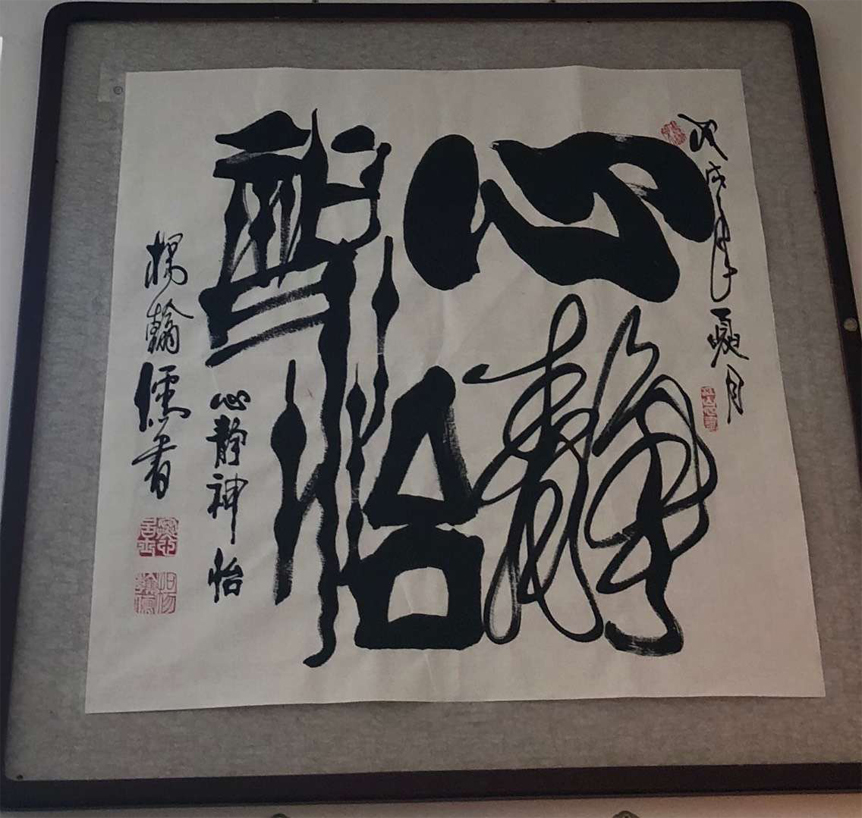 戊戌年夏月
心静
神怡
心静神怡
杨翰儒书